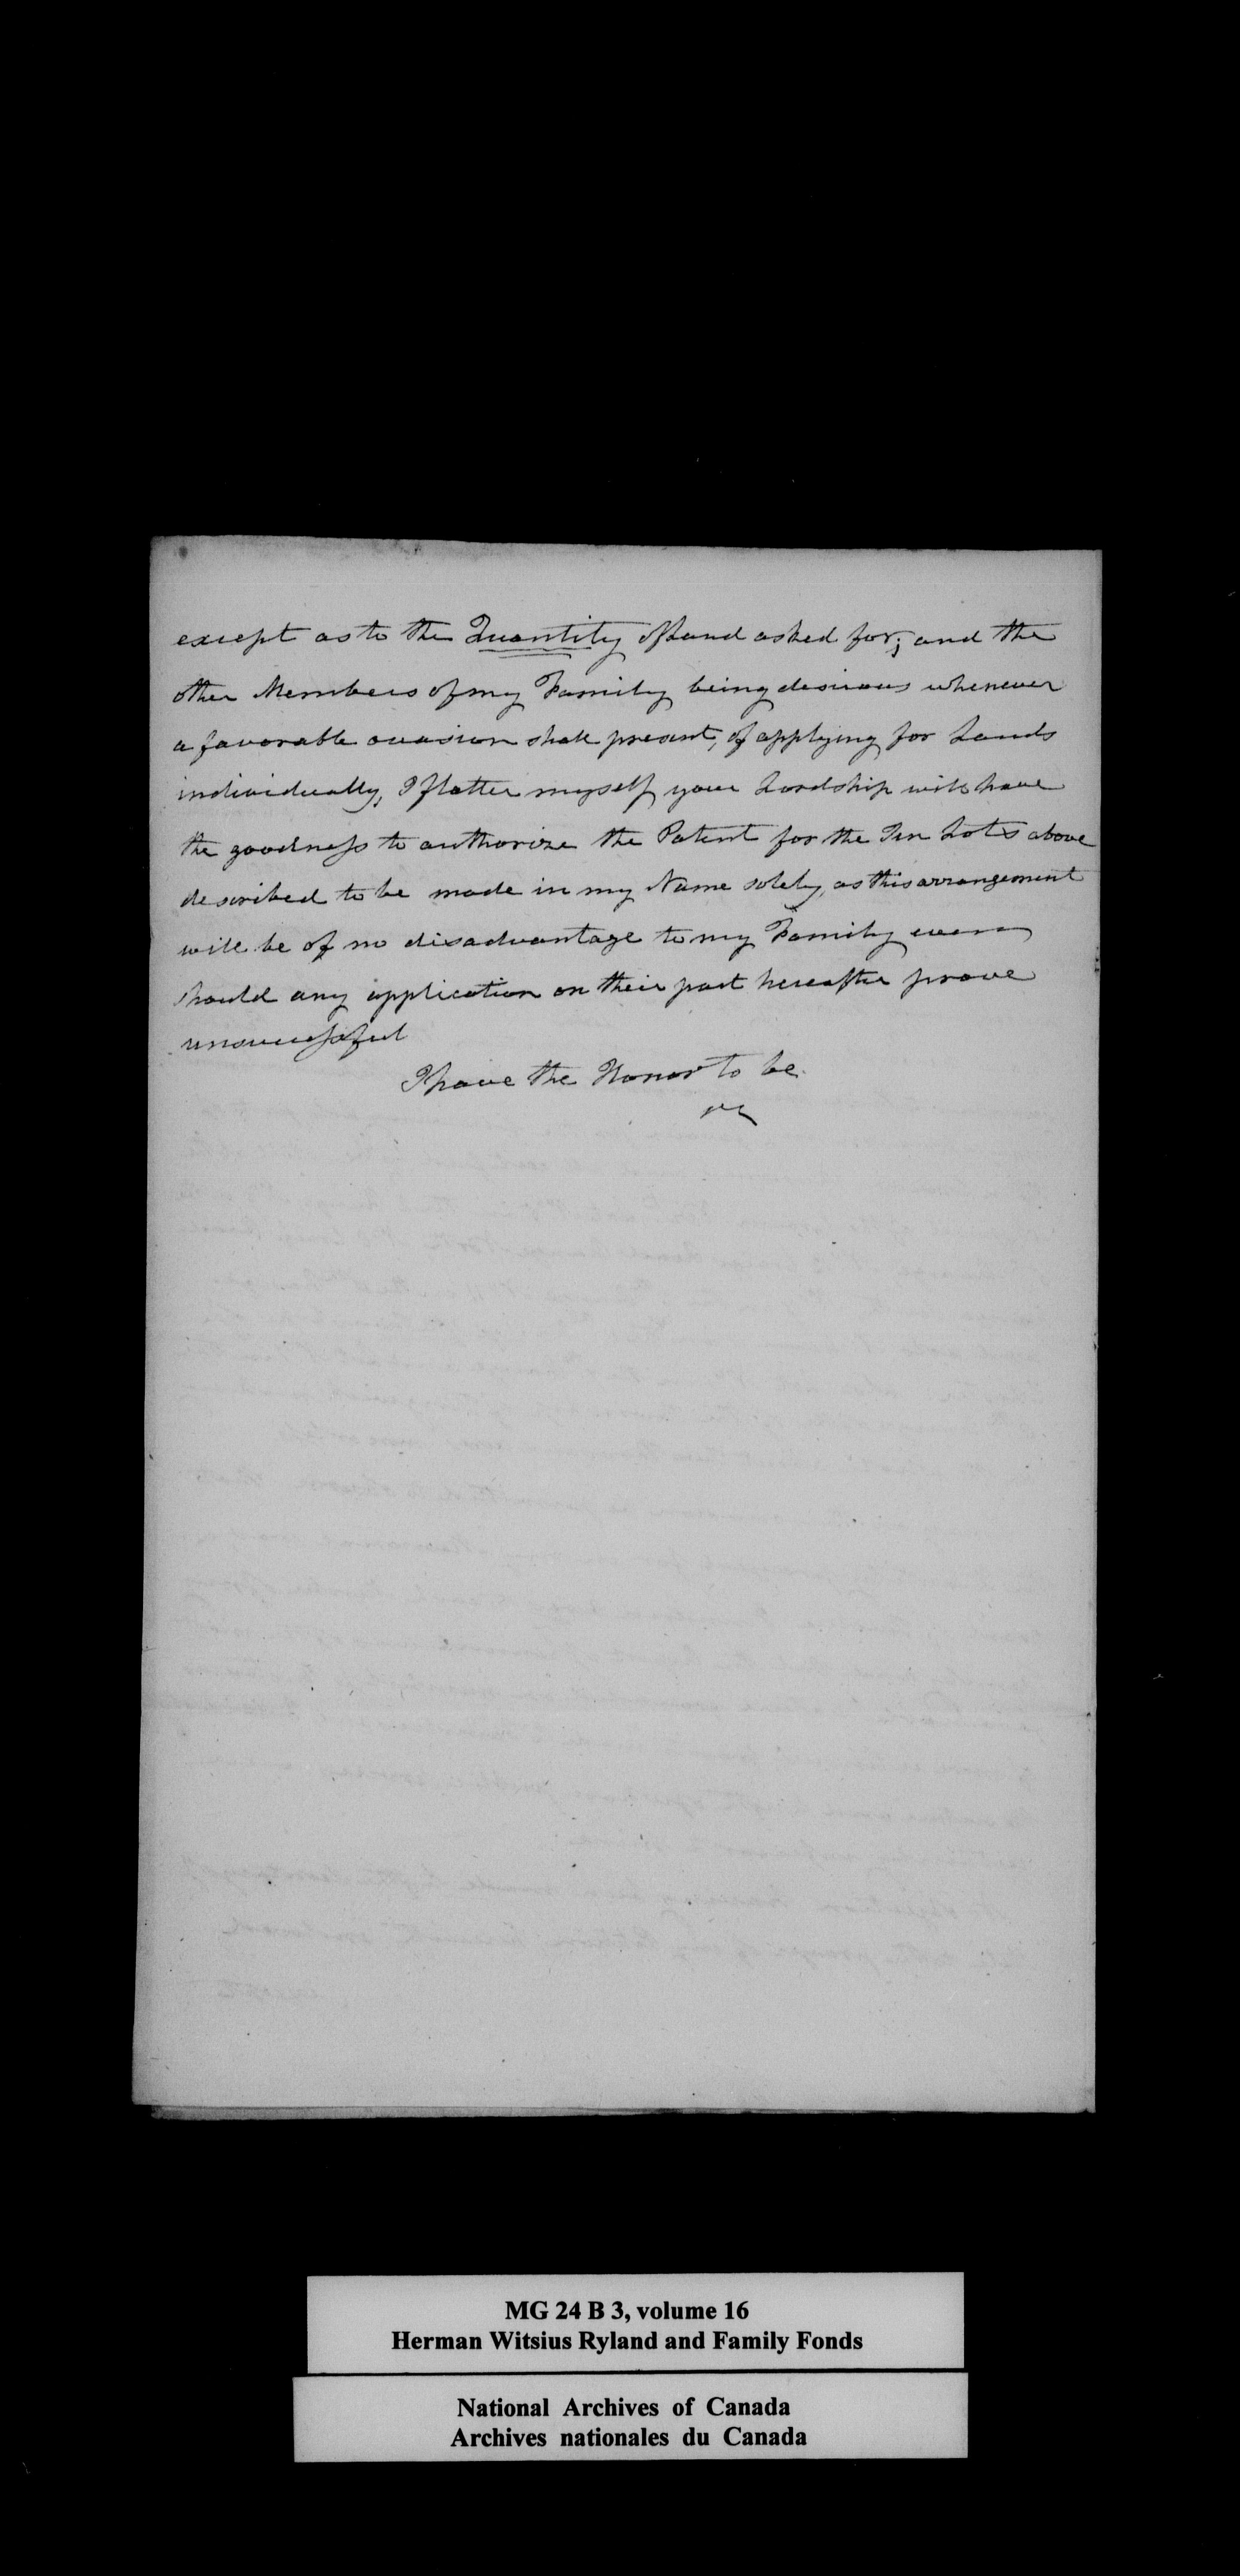 except as to the Quantity of Land asked for; and the
other Members of my Family being desirous whenever
a favorable occasion shall present, of applying for Lands
individually, I flatter myself your Lordship will have
the goodness to authorize the Patent for the Ten Lots above
described to be made in my Name solely, as this arrangement
will be of no disadvantage to my Family even
should any application on their part hereafter prove
unsuccessful
I have the Honor to be
&c
MG 24 B 3, volume 16
Herman Witsius Ryland and Family Fonds
National Archives of Canada
Archives nationales du Canada